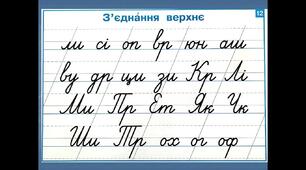 З’єднáння верхнє
12
ли сі оп вр юн аш
ву др ци зи Кр Лі
Ми Пр Ет Як Чк
Ши Тр ох ог оф